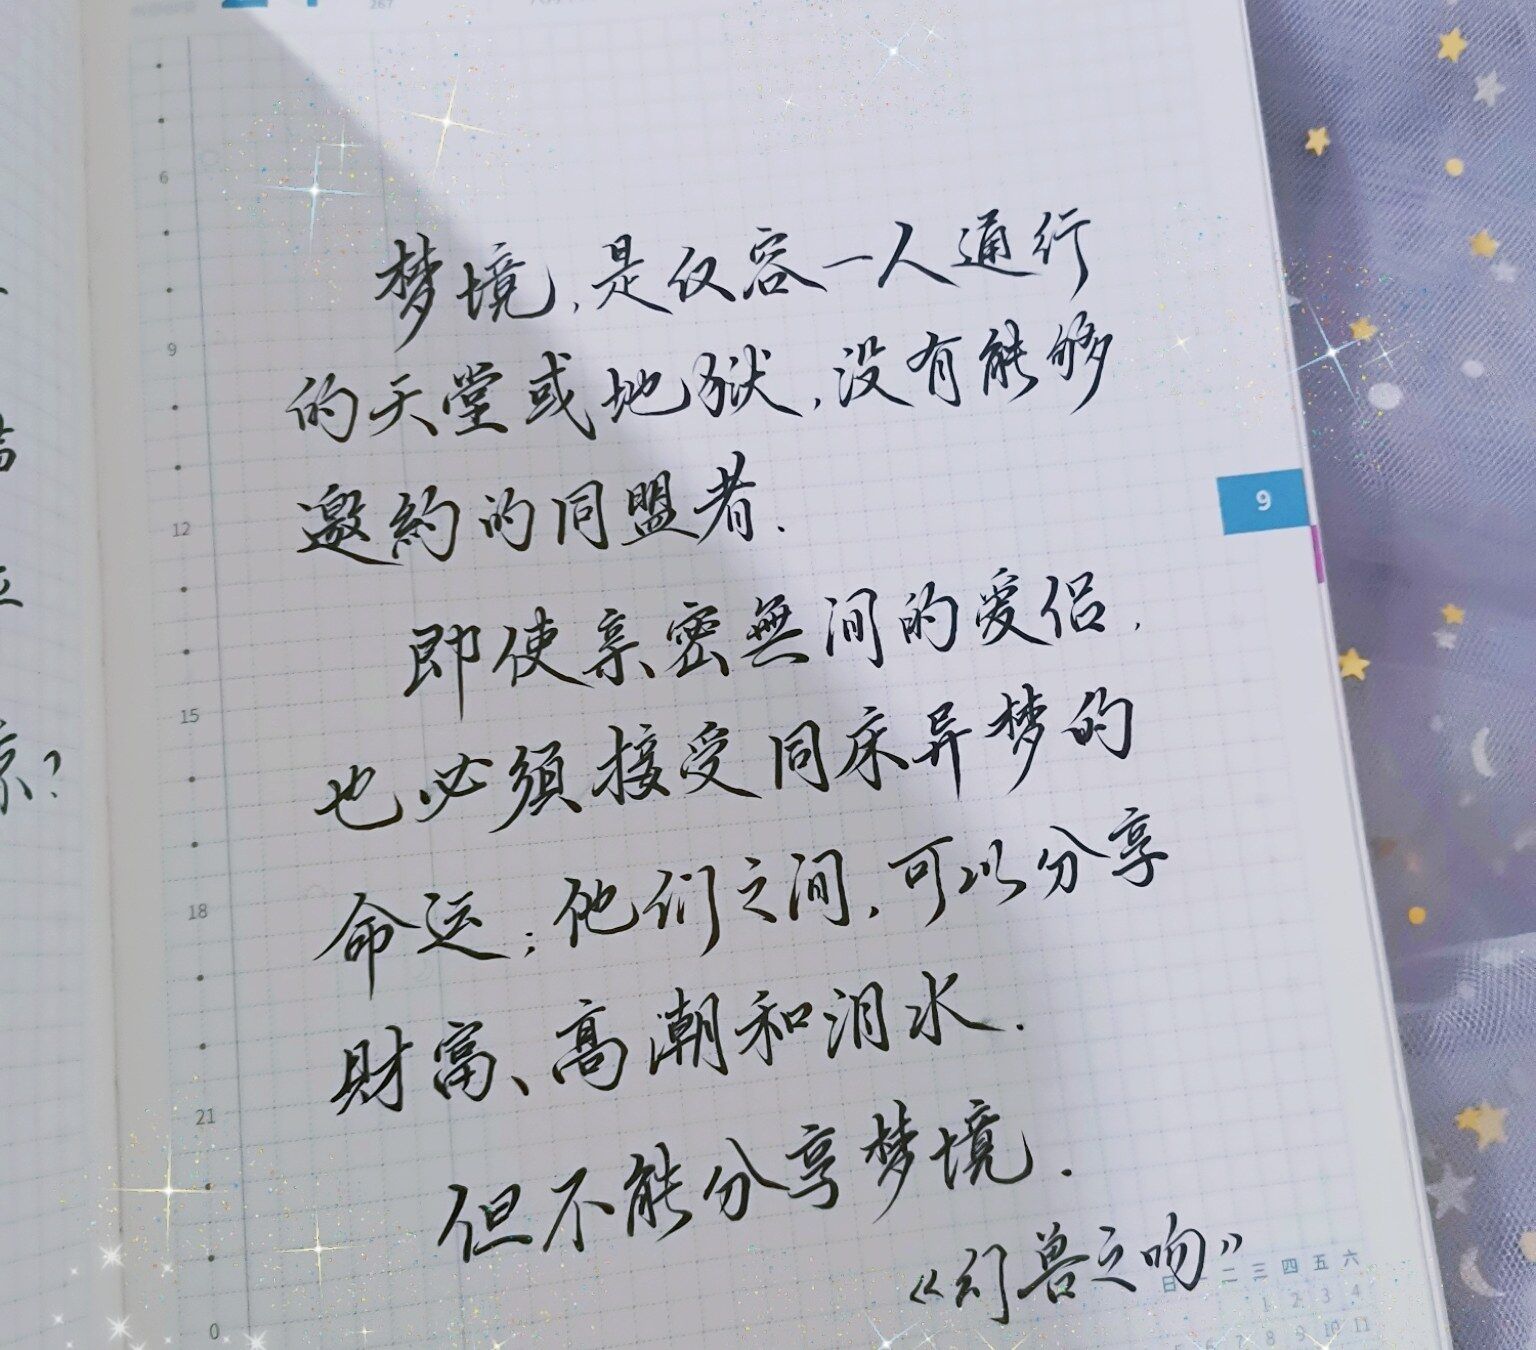 267
6
9
12
15
18
21
0
梦境,是仅容一人通行
的天堂或地狱,没有能够
邀約的同盟者.
即使亲密無间的爱侣,
也必須接受同床异梦的
命运;他们之间,可以分享
財富、高潮和泪水.
但不能分享梦境.
《幻兽之吻》
9
日 一 二 三 四 五 六
1 2 3 4
5 6 7 8 9 10 11